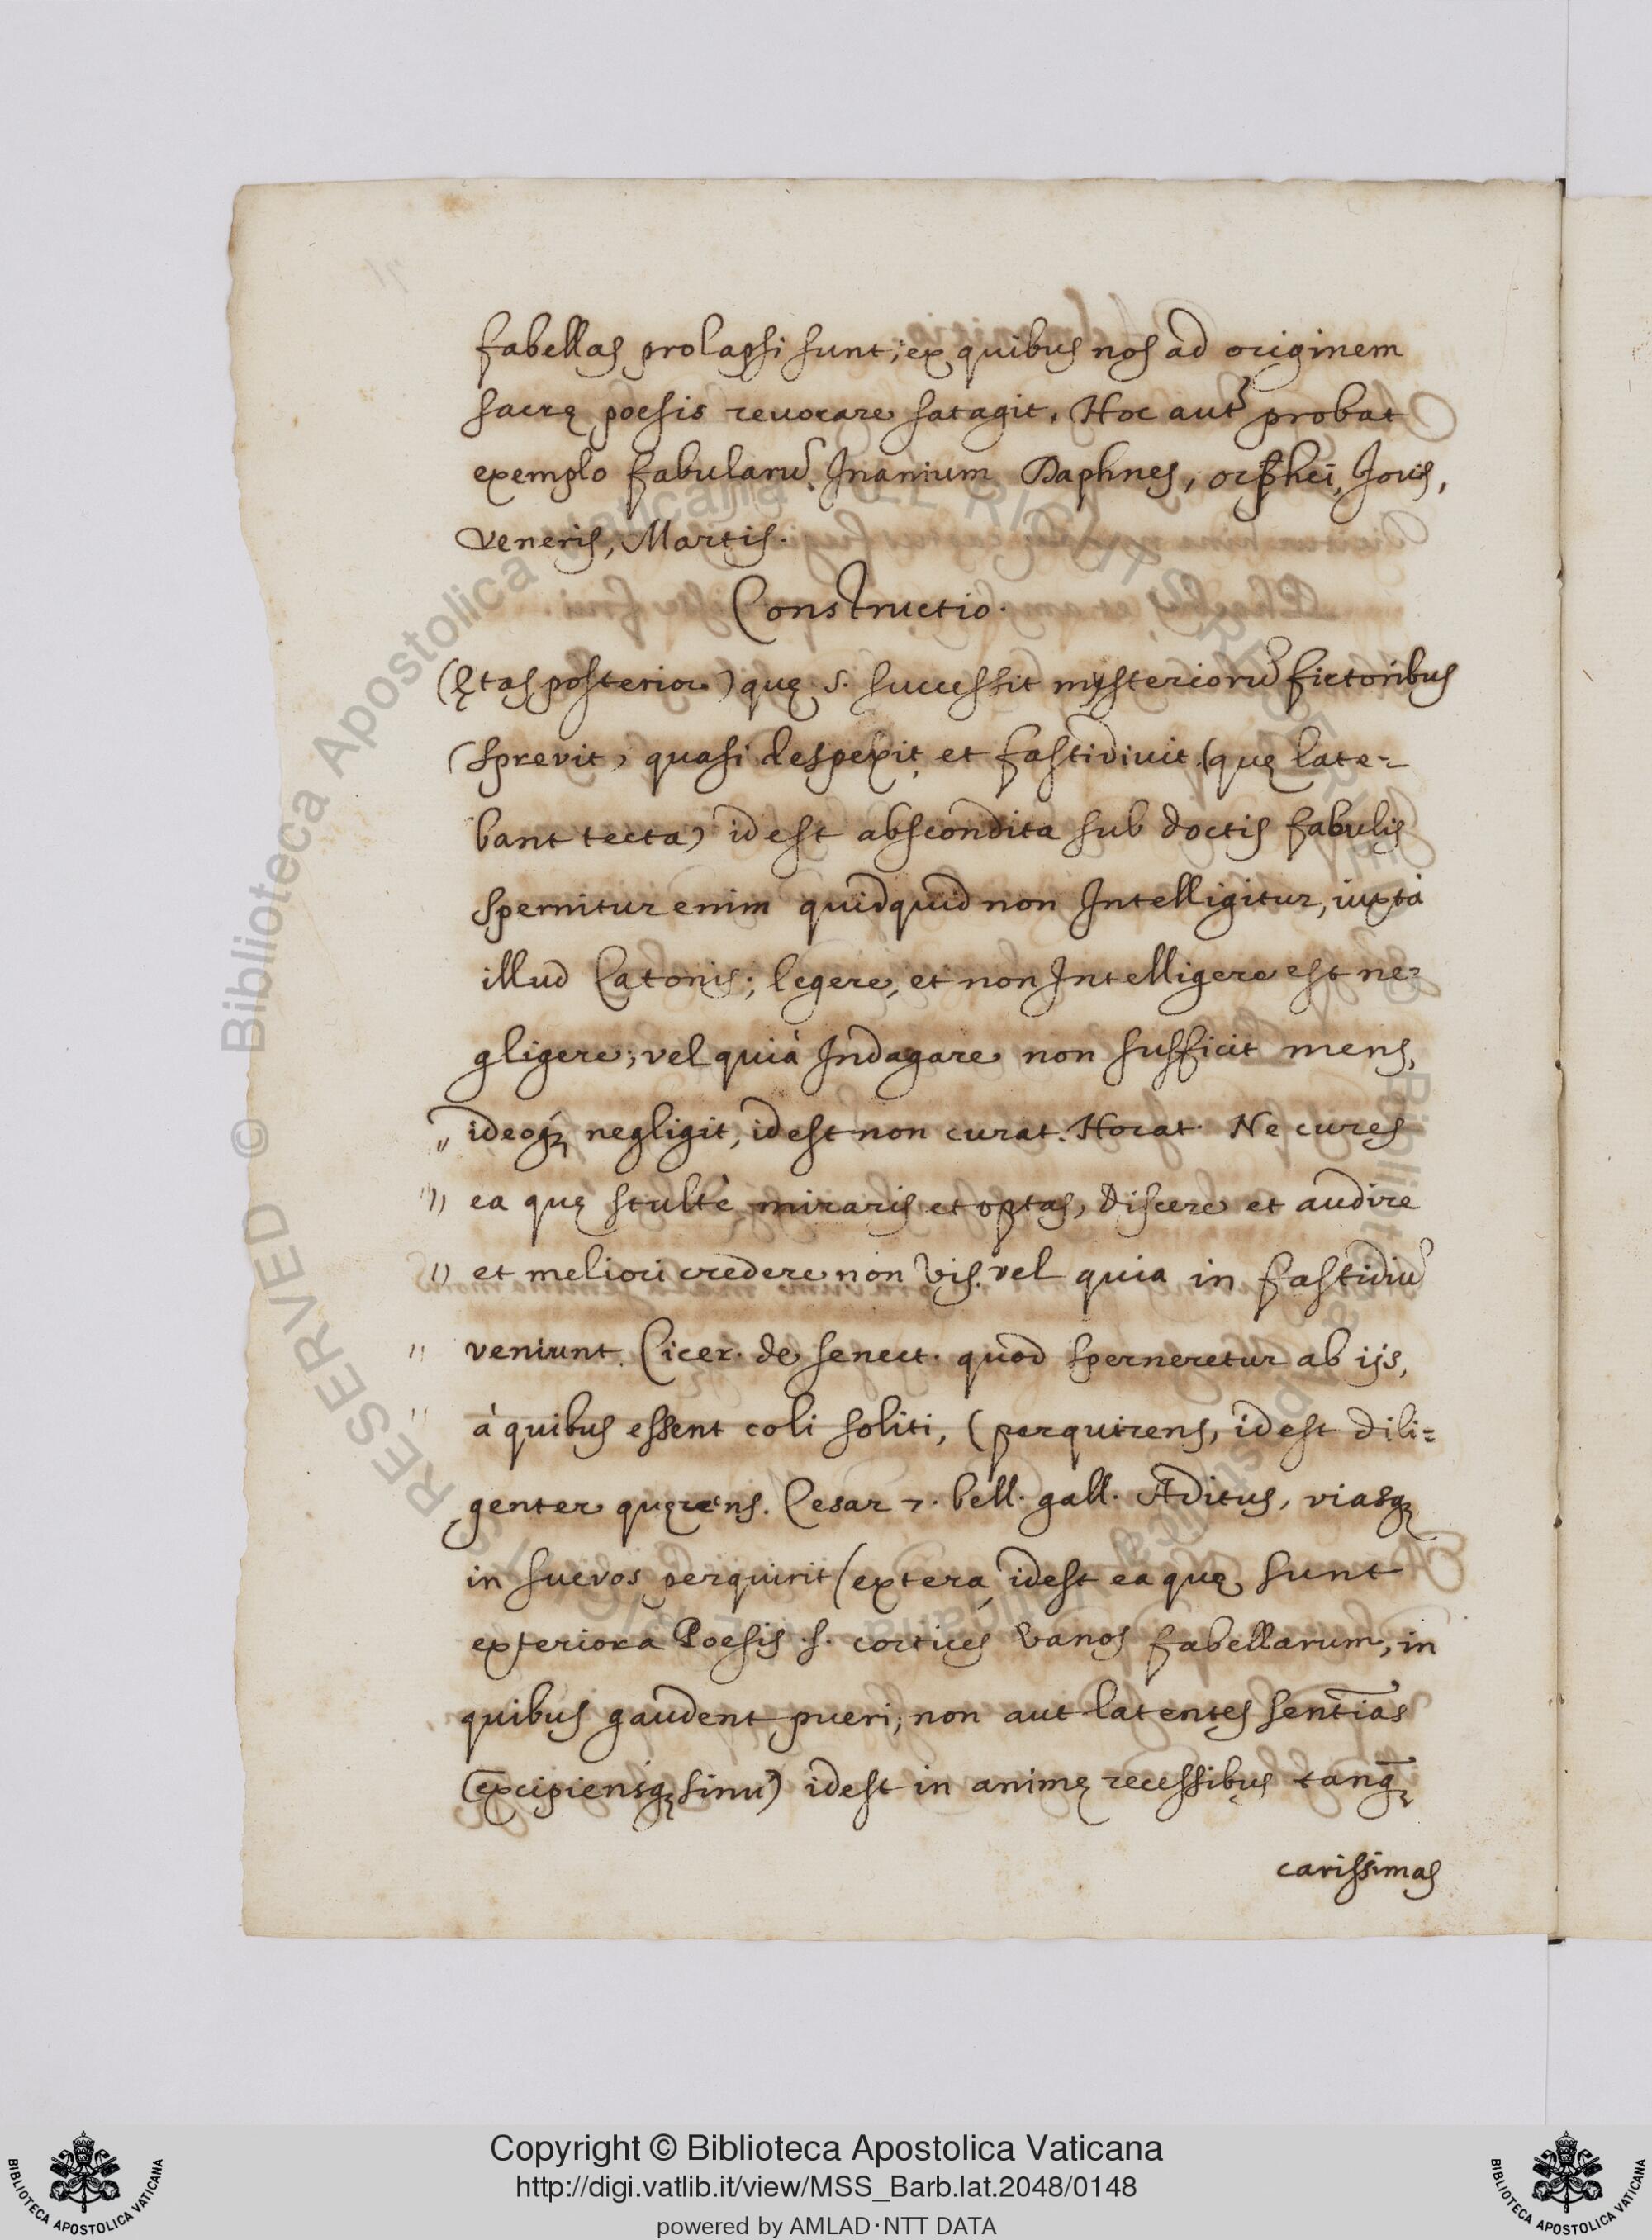 fabellas prolapsi sunt; ex quibus nos ad originem
sacrę poesis reuocare satagit. Hoc aut̃ probat
exemplo fabularũ Inanium Daphnes, orphei, Jouis,
Veneris, Martis.
Constructio.
(ętas posterior) quę s. successit mysteriorũ fictoribus
(sprevit) quasi despexit et fastidiuit (quę late=
bant tecta) idest abscondita sub doctis fabulis
spernitur enim quidquid non Intelligitur, iuxta
illud Catonis; legere, et non Intelligere est ne=
gligere; vel quià Indagare non sufficit mens,
" ideoq; negligit, idest non curat. Horat. Ne cures
" ea quę stultè miraris et optas, discere et audire
" et meliori credere non vis. vel quia in fastidiũ
" veniunt. Cicer. de senect. quod sperneretur ab ijs,
" à quibus essent coli soliti, (perquirens, idest dili=
genter quęrens. Cesar 7. bell. gall. Aditus, viasq;
in suevos perquirit (extera, idest ea quę sunt
exteriora Poesis .s. cortices vanos fabellarum, in
quibus gaudent pueri; non aut latentes sentias̃
(excipiensq; sinu) idest in animę recessibus tanq̃
carissimas
© Biblioteca Apostolica Vaticana ALL RIGHTS RESERVED
Copyright © Biblioteca Apostolica Vaticana
http://digi.vatlib.it/view/MSS_Barb.lat.2048/0148
powered by AMLAD·NTT DATA
BIBLIOTECA APOSTOLICA VATICANA
BIBLIOTECA APOSTOLICA VATICANA